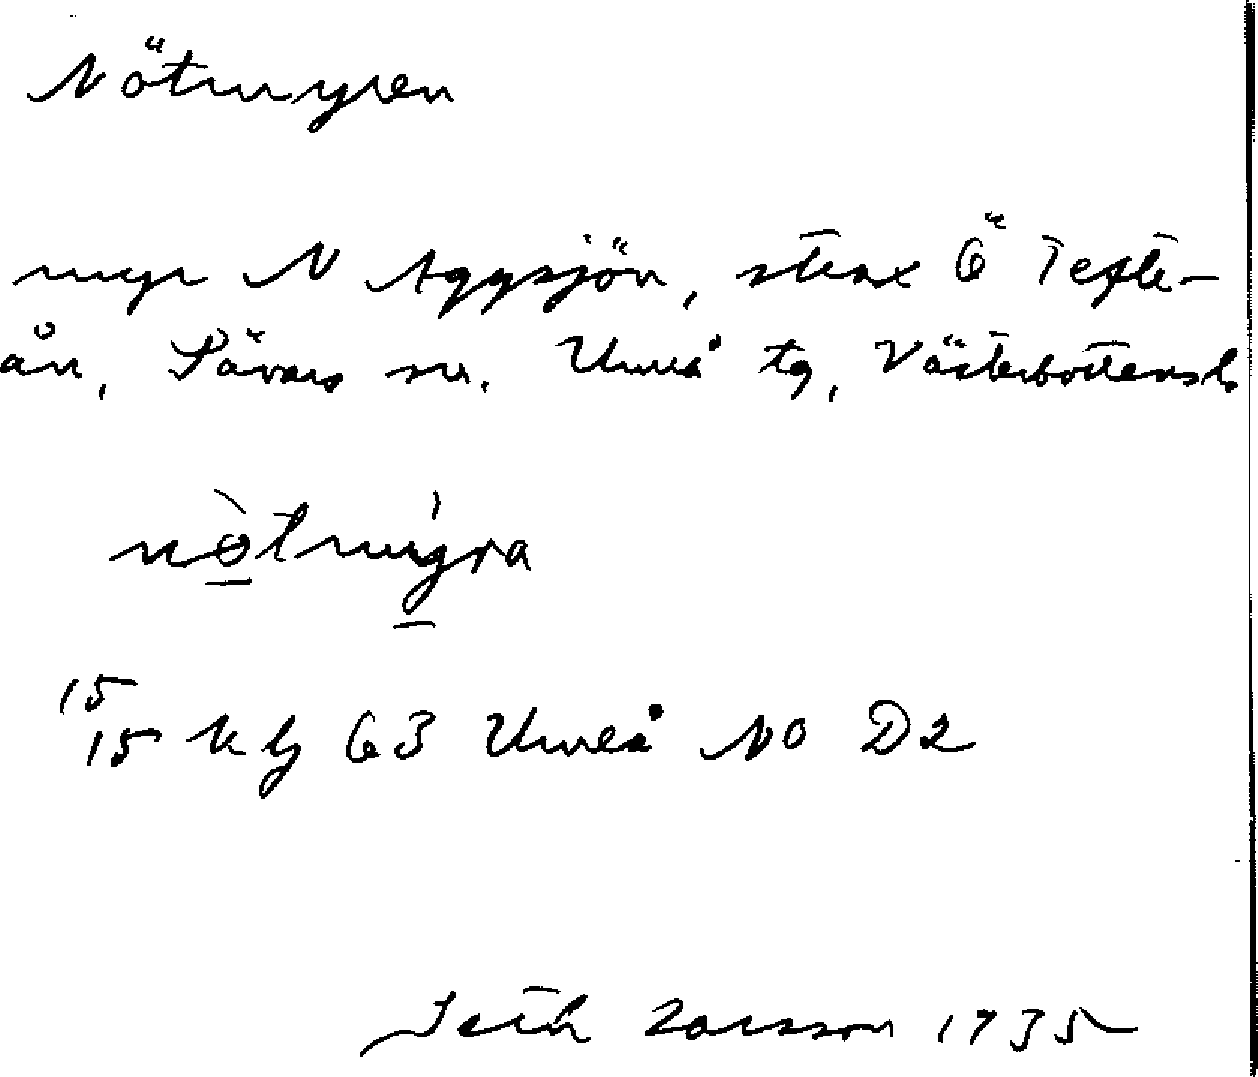 Nötmyren
myr N Aggsjön, strax Ö Tefte-
ån, Sävars sn. Umeå tg, Västerbottensl.
nø̀tmýra
15
15 k bj 63 Umeå NO D2
Seth Larsson 1935